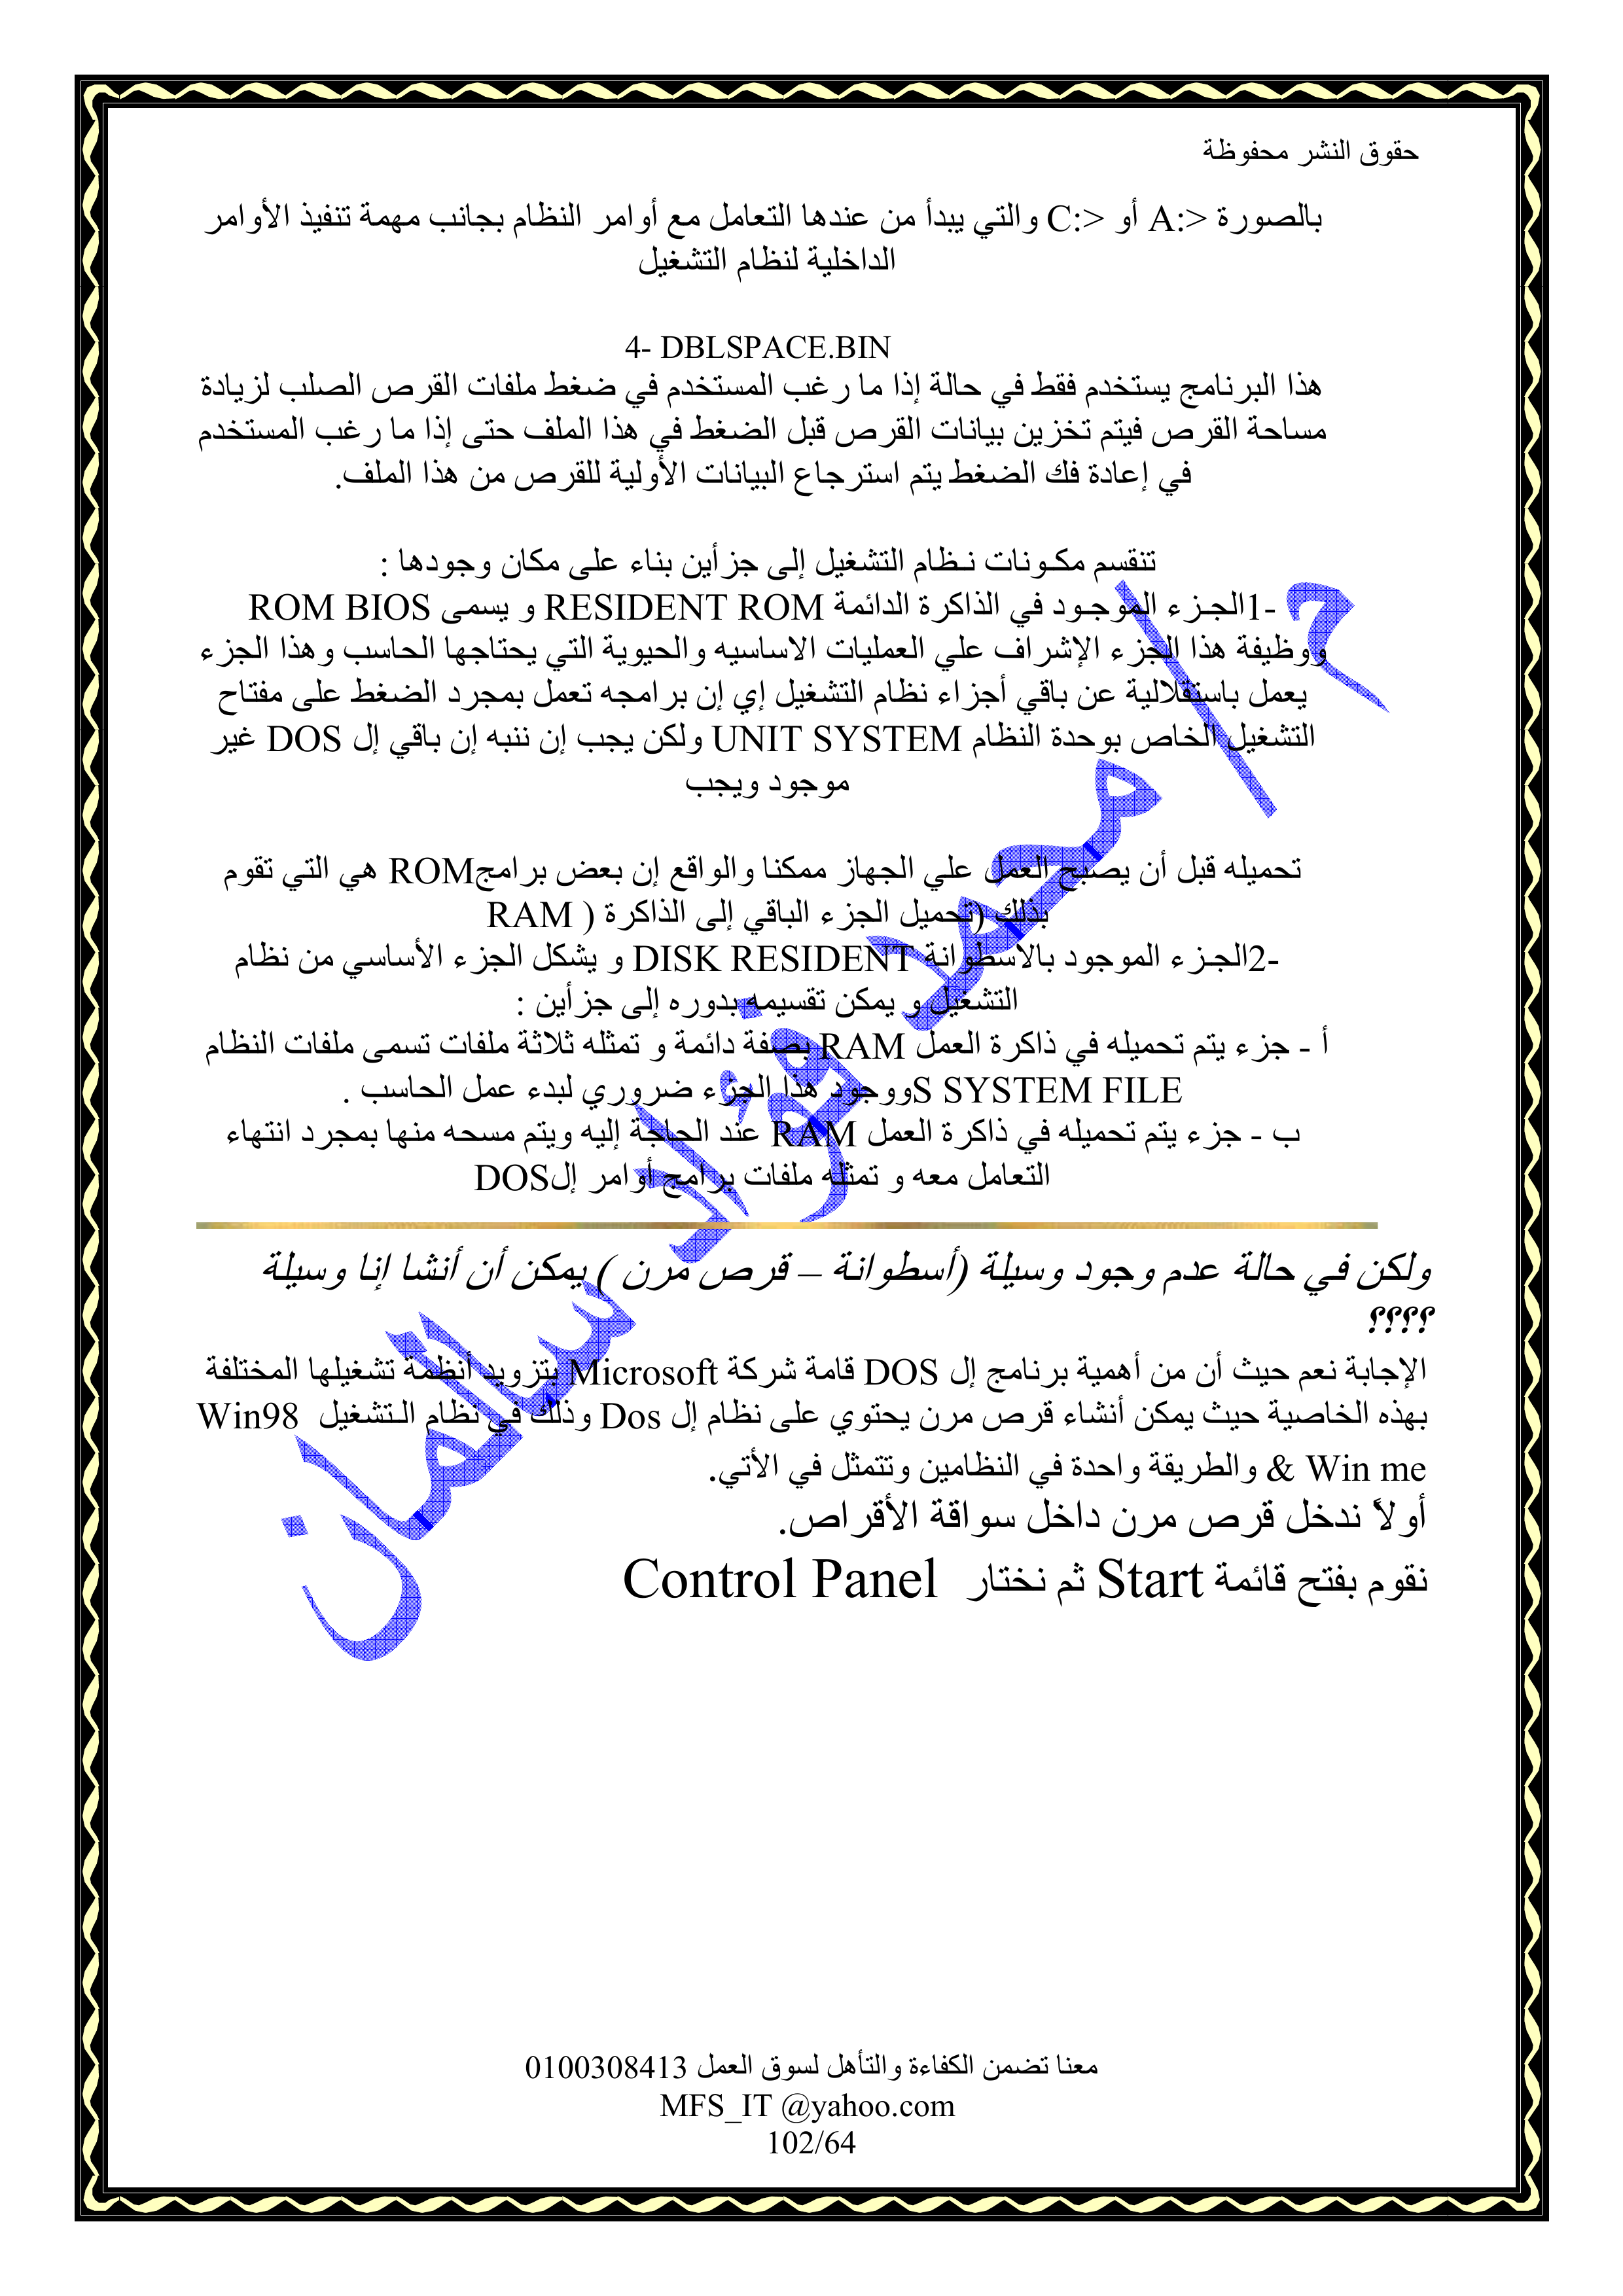 حقوق النشر محفوظة
بالصورة <:A أو <:C والتي يبدأ من عندها التعامل مع أوامر النظام بجانب مهمة تنفيذ الأوامر
الداخلية لنظام التشغيل
4- DBLSPACE.BIN
هذا البرنامج يستخدم فقط في حالة إذا ما رغب المستخدم في ضغط ملفات القرص الصلب لزيادة
مساحة القرص فيتم تخزين بيانات القرص قبل الضغط في هذا الملف حتى إذا ما رغب المستخدم
في إعادة فك الضغط يتم استرجاع البيانات الأولية للقرص من هذا الملف.
تنقسم مكـونات نـظام التشغيل إلى جزأين بناء على مكان وجودها :
-1الجـزء الموجـود في الذاكرة الدائمة RESIDENT ROM و يسمى ROM BIOS
ووظيفة هذا الجزء الإشراف علي العمليات الاساسيه والحيوية التي يحتاجها الحاسب وهذا الجزء
يعمل باستقلالية عن باقي أجزاء نظام التشغيل إي إن برامجه تعمل بمجرد الضغط على مفتاح
التشغيل الخاص بوحدة النظام UNIT SYSTEM ولكن يجب إن ننبه إن باقي إل DOS غير
موجود ويجب
تحميله قبل أن يصبح العمل علي الجهاز ممكنا والواقع إن بعض برامجROM هي التي تقوم
بذلك (تحميل الجزء الباقي إلى الذاكرة ( RAM
-2الجـزء الموجود بالاسطوانة DISK RESIDENT و يشكل الجزء الأساسي من نظام
التشغيل و يمكن تقسيمه بدوره إلى جزأين :
أ - جزء يتم تحميله في ذاكرة العمل RAM بصفة دائمة و تمثله ثلاثة ملفات تسمى ملفات النظام
S SYSTEM FILEووجود هذا الجزء ضروري لبدء عمل الحاسب .
ب - جزء يتم تحميله في ذاكرة العمل RAM عند الحاجة إليه ويتم مسحه منها بمجرد انتهاء
التعامل معه و تمثله ملفات برامج أوامر إلDOS
ولكن في حالة عدم وجود وسيلة (أسطوانة – قرص مرن ) يمكن أن أنشا إنا وسيلة
؟؟؟؟
الإجابة نعم حيث أن من أهمية برنامج إل DOS قامة شركة Microsoft بتزويد أنظمة تشغيلها المختلفة
بهذه الخاصية حيث يمكن أنشاء قرص مرن يحتوي على نظام إل Dos وذلك في نظام الـتشغيل Win98
& Win me والطريقة واحدة في النظامين وتتمثل في الأتي.
أولاً ندخل قرص مرن داخل سواقة الأقراص.
نقوم بفتح قائمة Start ثم نختار Control Panel
م / محمد فؤاد سالمان
معنا تضمن الكفاءة والتأهل لسوق العمل 0100308413
MFS_IT @yahoo.com
102/64